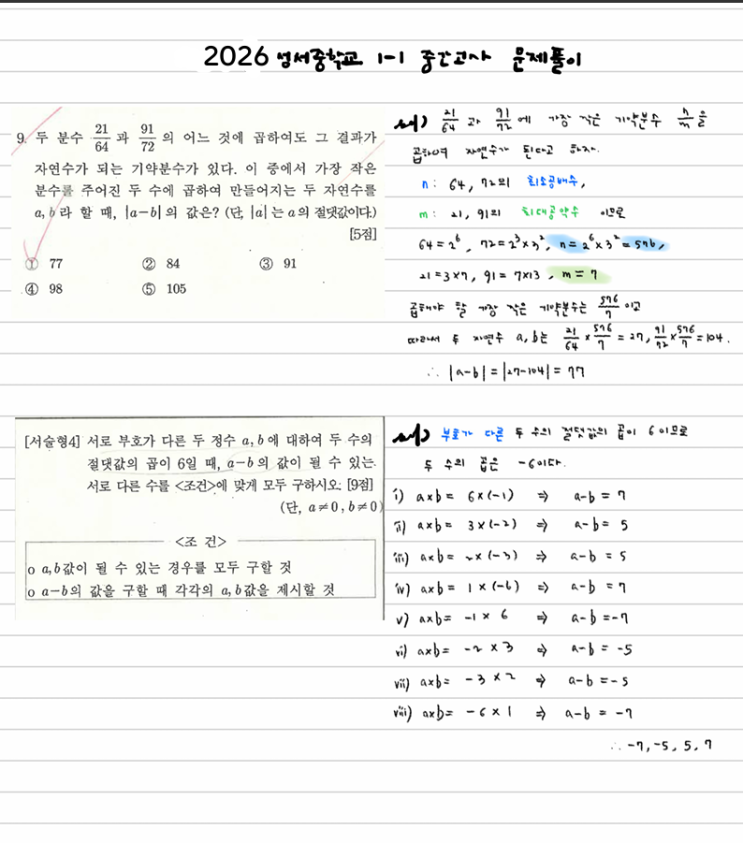 2026 넘서중학교 1-1 중간고사 문제풀이
9. 두 분수 21/64 과 91/72 의 어느 것에 곱하여도 그 결과가
자연수가 되는 기약분수가 있다. 이 중에서 가장 작은
분수를 주어진 두 수에 곱하여 만들어지는 두 자연수를
a, b라 할 때, |a-b|의 값은? (단, |a|는 a의 절댓값이다.)
[5점]
① 77 ② 84 ③ 91
④ 98 ⑤ 105
21/64 과 91/72 에 가장 작은 기약분수 n/m 을
곱하여 자연수가 된다고 하자.
n : 64, 72의 최소공배수,
m : 21, 91의 최대공약수 이므로
64=2⁶, 72=2³×3², n=2⁶×3²=576,
21=3×7, 91=7×13, m=7
곱해야 할 가장 작은 기약분수는 576/7 이고
따라서 두 자연수 a, b는 21/64×576/7=27, 91/72×576/7=104.
∴ |a-b|=|27-104|=77
[서술형4] 서로 부호가 다른 두 정수 a, b에 대하여 두 수의
절댓값의 곱이 6일 때, a-b의 값이 될 수 있는
서로 다른 수를 <조건>에 맞게 모두 구하시오. [9점]
(단, a≠0, b≠0)
<조 건>
o a, b값이 될 수 있는 경우를 모두 구할 것
o a-b의 값을 구할 때 각각의 a, b값을 제시할 것
부호가 다른 두 수의 절댓값의 곱이 6이므로
두 수의 곱은 -6이다.
i) a×b= 6×(-1) ⇒ a-b=7
ii) a×b= 3×(-2) ⇒ a-b=5
iii) a×b= 2×(-3) ⇒ a-b=5
iv) a×b= 1×(-6) ⇒ a-b=7
v) a×b= -1×6 ⇒ a-b=-7
vi) a×b= -2×3 ⇒ a-b=-5
vii) a×b= -3×2 ⇒ a-b=-5
viii) a×b= -6×1 ⇒ a-b=-7
∴ -7, -5, 5, 7